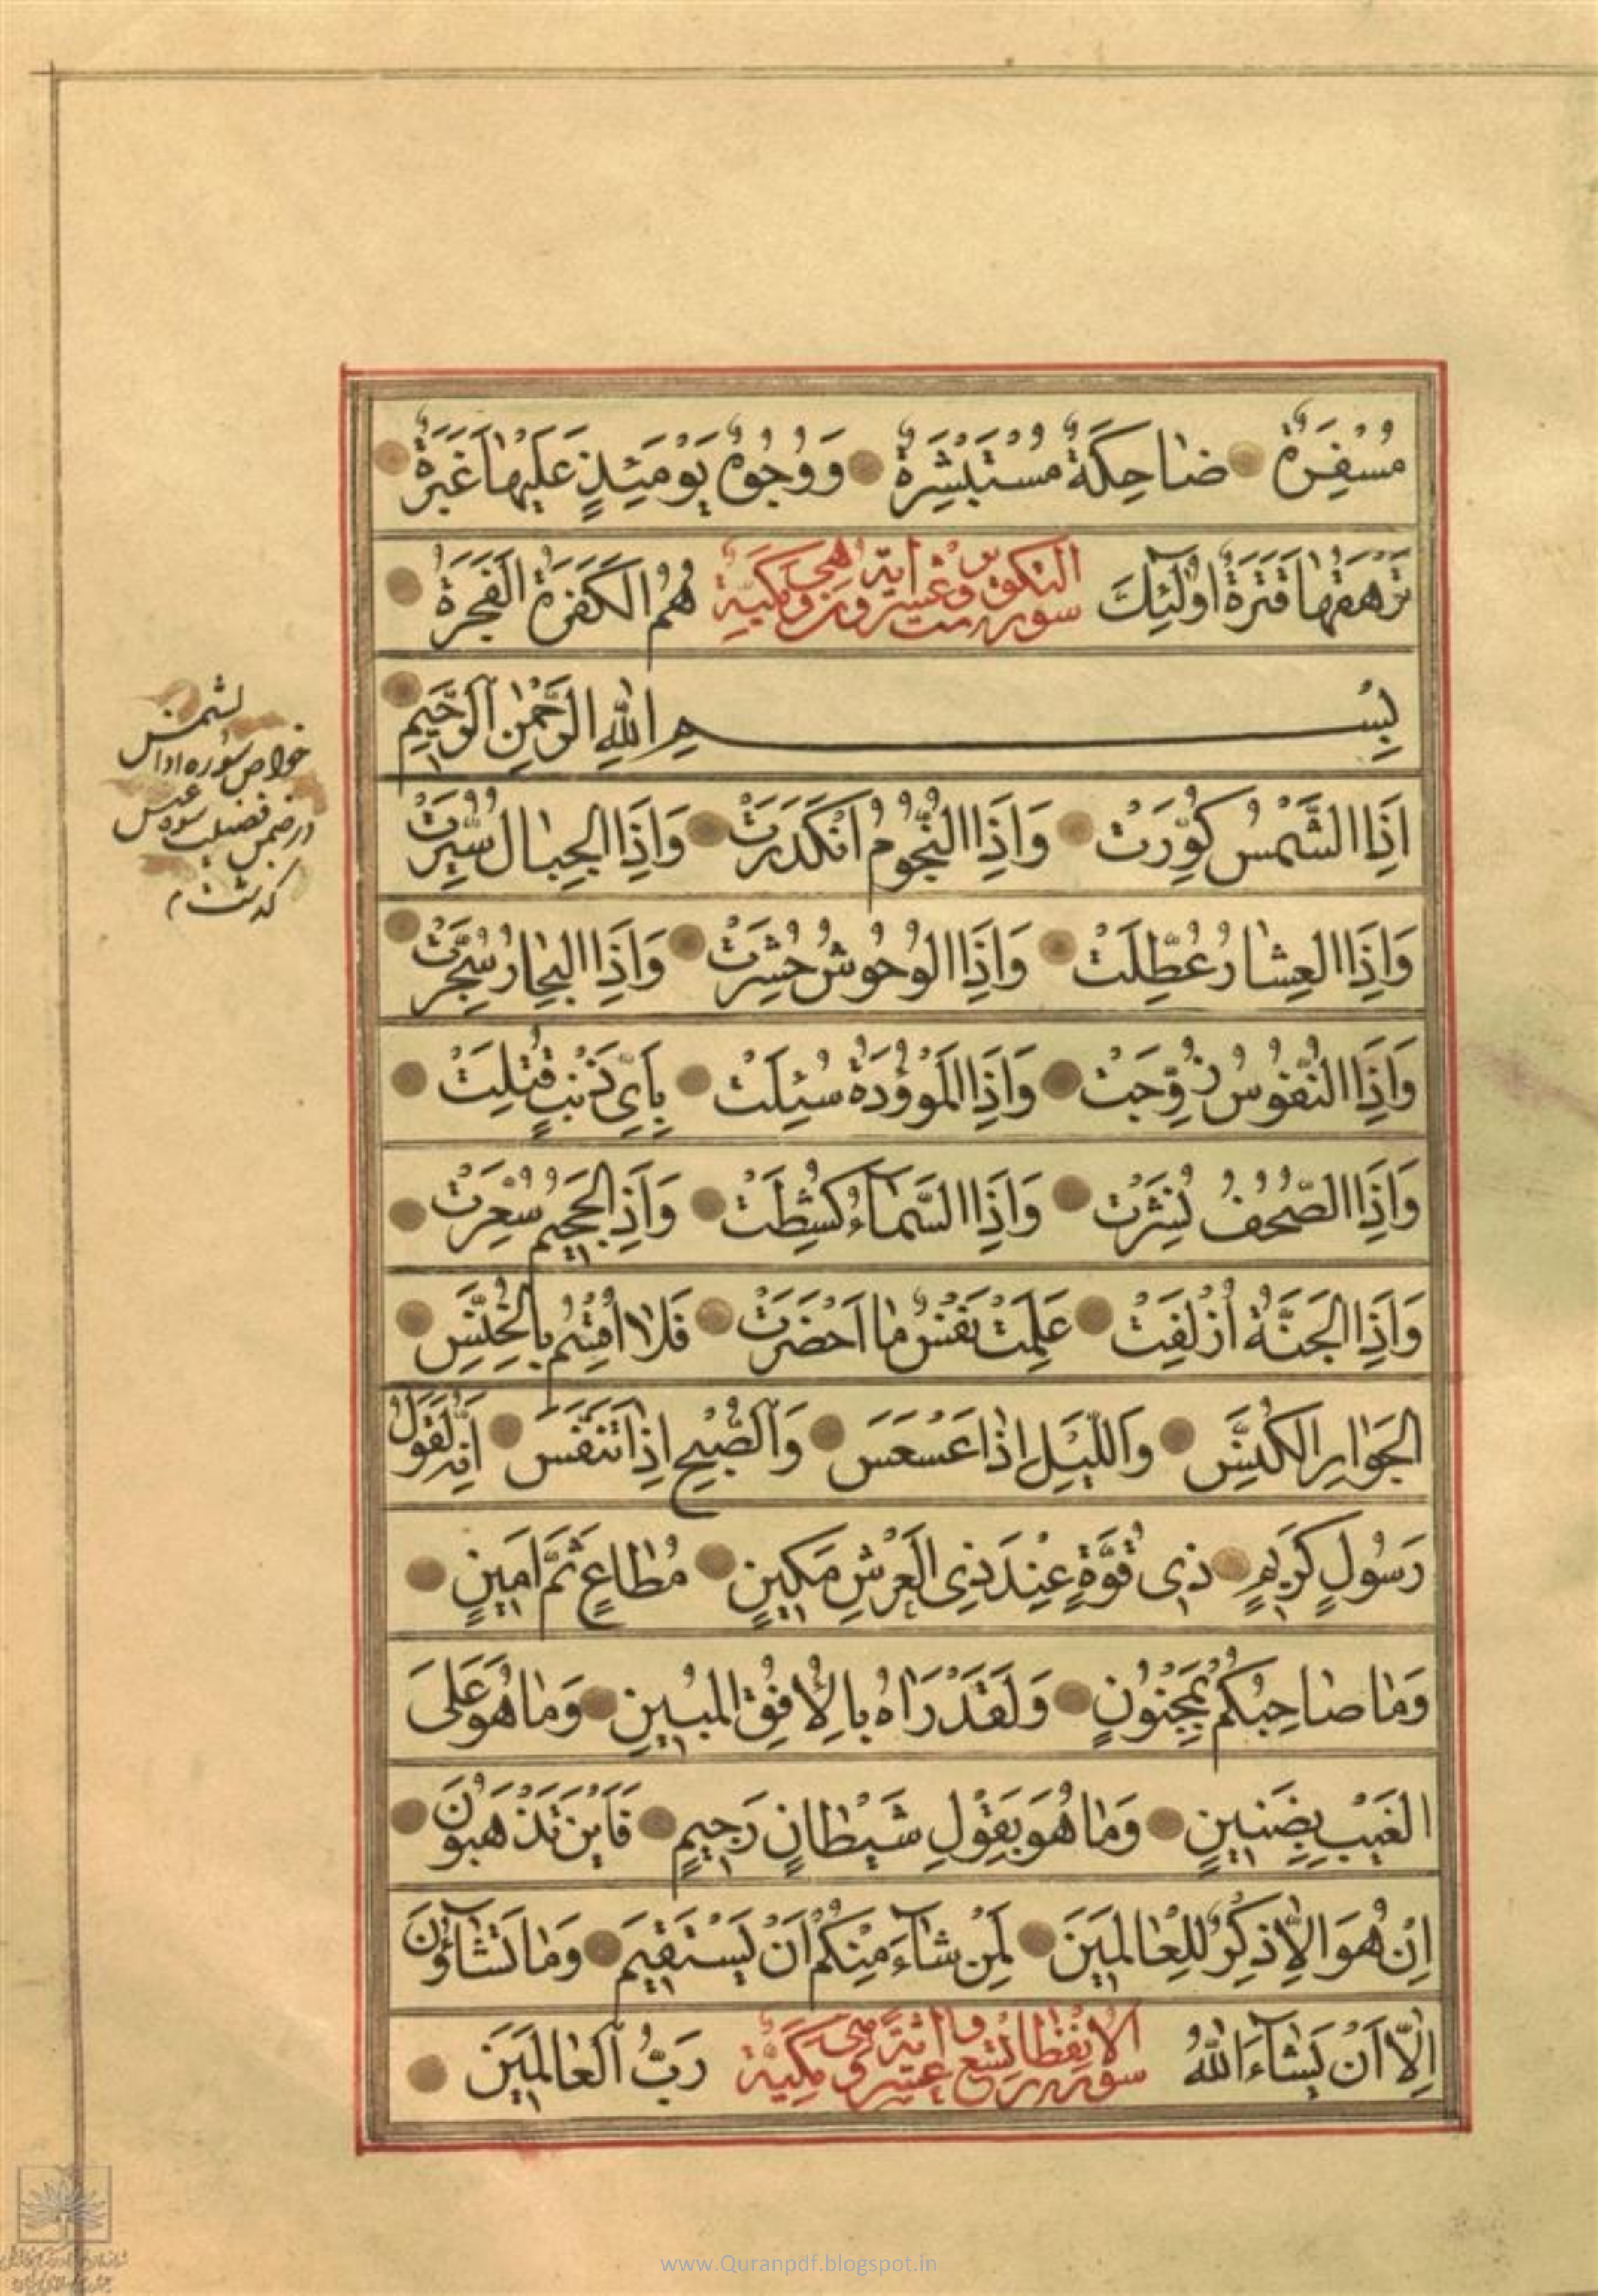 مُسْفِرَةٌ ضاحِكَةٌ مُسْتَبْشِرَةٌ وَوُجُوهٌ يَوْمَئِذٍ عَلَيْها غَبَرَةٌ
تَرْهَقُها قَتَرَةٌ اُولٰئِكَ هُمُ الْكَفَرَةُ الْفَجَرَةُ
سورة التكوير وهى مكيّة
بِسْمِ اللّٰهِ الرَّحْمٰنِ الرَّحِيمِ
اِذَا الشَّمْسُ كُوِّرَتْ وَاِذَا النُّجُومُ انْكَدَرَتْ وَاِذَا الْجِبالُ سُيِّرَتْ
وَاِذَا الْعِشارُ عُطِّلَتْ وَاِذَا الْوُحُوشُ حُشِرَتْ وَاِذَا الْبِحارُ سُجِّرَتْ
وَاِذَا النُّفُوسُ زُوِّجَتْ وَاِذَا الْمَوْؤُدَةُ سُئِلَتْ بِاَيِّ ذَنْبٍ قُتِلَتْ
وَاِذَا الصُّحُفُ نُشِرَتْ وَاِذَا السَّماءُ كُشِطَتْ وَاِذَا الْجَحِيمُ سُعِّرَتْ
وَاِذَا الْجَنَّةُ اُزْلِفَتْ عَلِمَتْ نَفْسٌ ما اَحْضَرَتْ فَلا اُقْسِمُ بِالْخُنَّسِ
الْجَوارِ الْكُنَّسِ وَاللَّيْلِ اِذا عَسْعَسَ وَالصُّبْحِ اِذا تَنَفَّسَ اِنَّهُ لَقَوْلُ
رَسُولٍ كَرِيمٍ ذِى قُوَّةٍ عِنْدَ ذِى الْعَرْشِ مَكِينٍ مُطاعٍ ثَمَّ اَمِينٍ
وَما صاحِبُكُمْ بِمَجْنُونٍ وَلَقَدْ رَاٰهُ بِالْاُفُقِ الْمُبِينِ وَما هُوَ عَلَى
الْغَيْبِ بِضَنِينٍ وَما هُوَ بِقَوْلِ شَيْطانٍ رَجِيمٍ فَاَيْنَ تَذْهَبُونَ
اِنْ هُوَ اِلَّا ذِكْرٌ لِلْعالَمِينَ لِمَنْ شاءَ مِنْكُمْ اَنْ يَسْتَقِيمَ وَما تَشاؤُنَ
اِلَّا اَنْ يَشاءَ اللّٰهُ رَبُّ الْعالَمِينَ
سورة الانفطار تسع عشر اية وهى مكيّة
خواص سوره اذا
لشمس
در ضمن فضيلت سوره عبس
كذشت
www.Quranpdf.blogspot.in